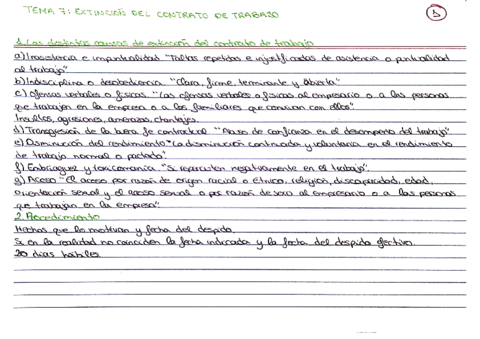 TEMA 7: EXTINCIÓN DEL CONTRATO DE TRABAJO
5
1. Las distintas causas de extinción del contrato de trabajo
a) Inasistencia e impuntualidad. "Faltas repetidas e injustificadas de asistencia o puntualidad
al trabajo"
b) Indisciplina o desobediencia. "Clara, firme, terminante y abierta"
c) Ofensas verbales o físicas. "Las ofensas verbales o físicas al empresario o a las personas
que trabajan en la empresa o a los familiares que convivan con ellos".
Insultos, agresiones, amenazas, chantajes.
d) Transgresión de la buena fe contractual "Abuso de confianza en el desempeño del trabajo"
e) Disminución del rendimiento. "La disminución continuada y voluntaria en el rendimiento
de trabajo normal o pactado"
f) Embriaguez y toxicomanía. "Si repercuten negativamente en el trabajo".
g) Acoso "El acoso por razón de origen racial o étnico, religión, discapacidad, edad,
orientación sexual y el acoso sexual o por razón de sexo al empresario o a las personas
que trabajan en la empresa".
2. Procedimiento
Hechos que lo motivan y fecha del despido.
Si en la realidad no coinciden la fecha indicada y la fecha del despido efectivo.
20 días hábiles.